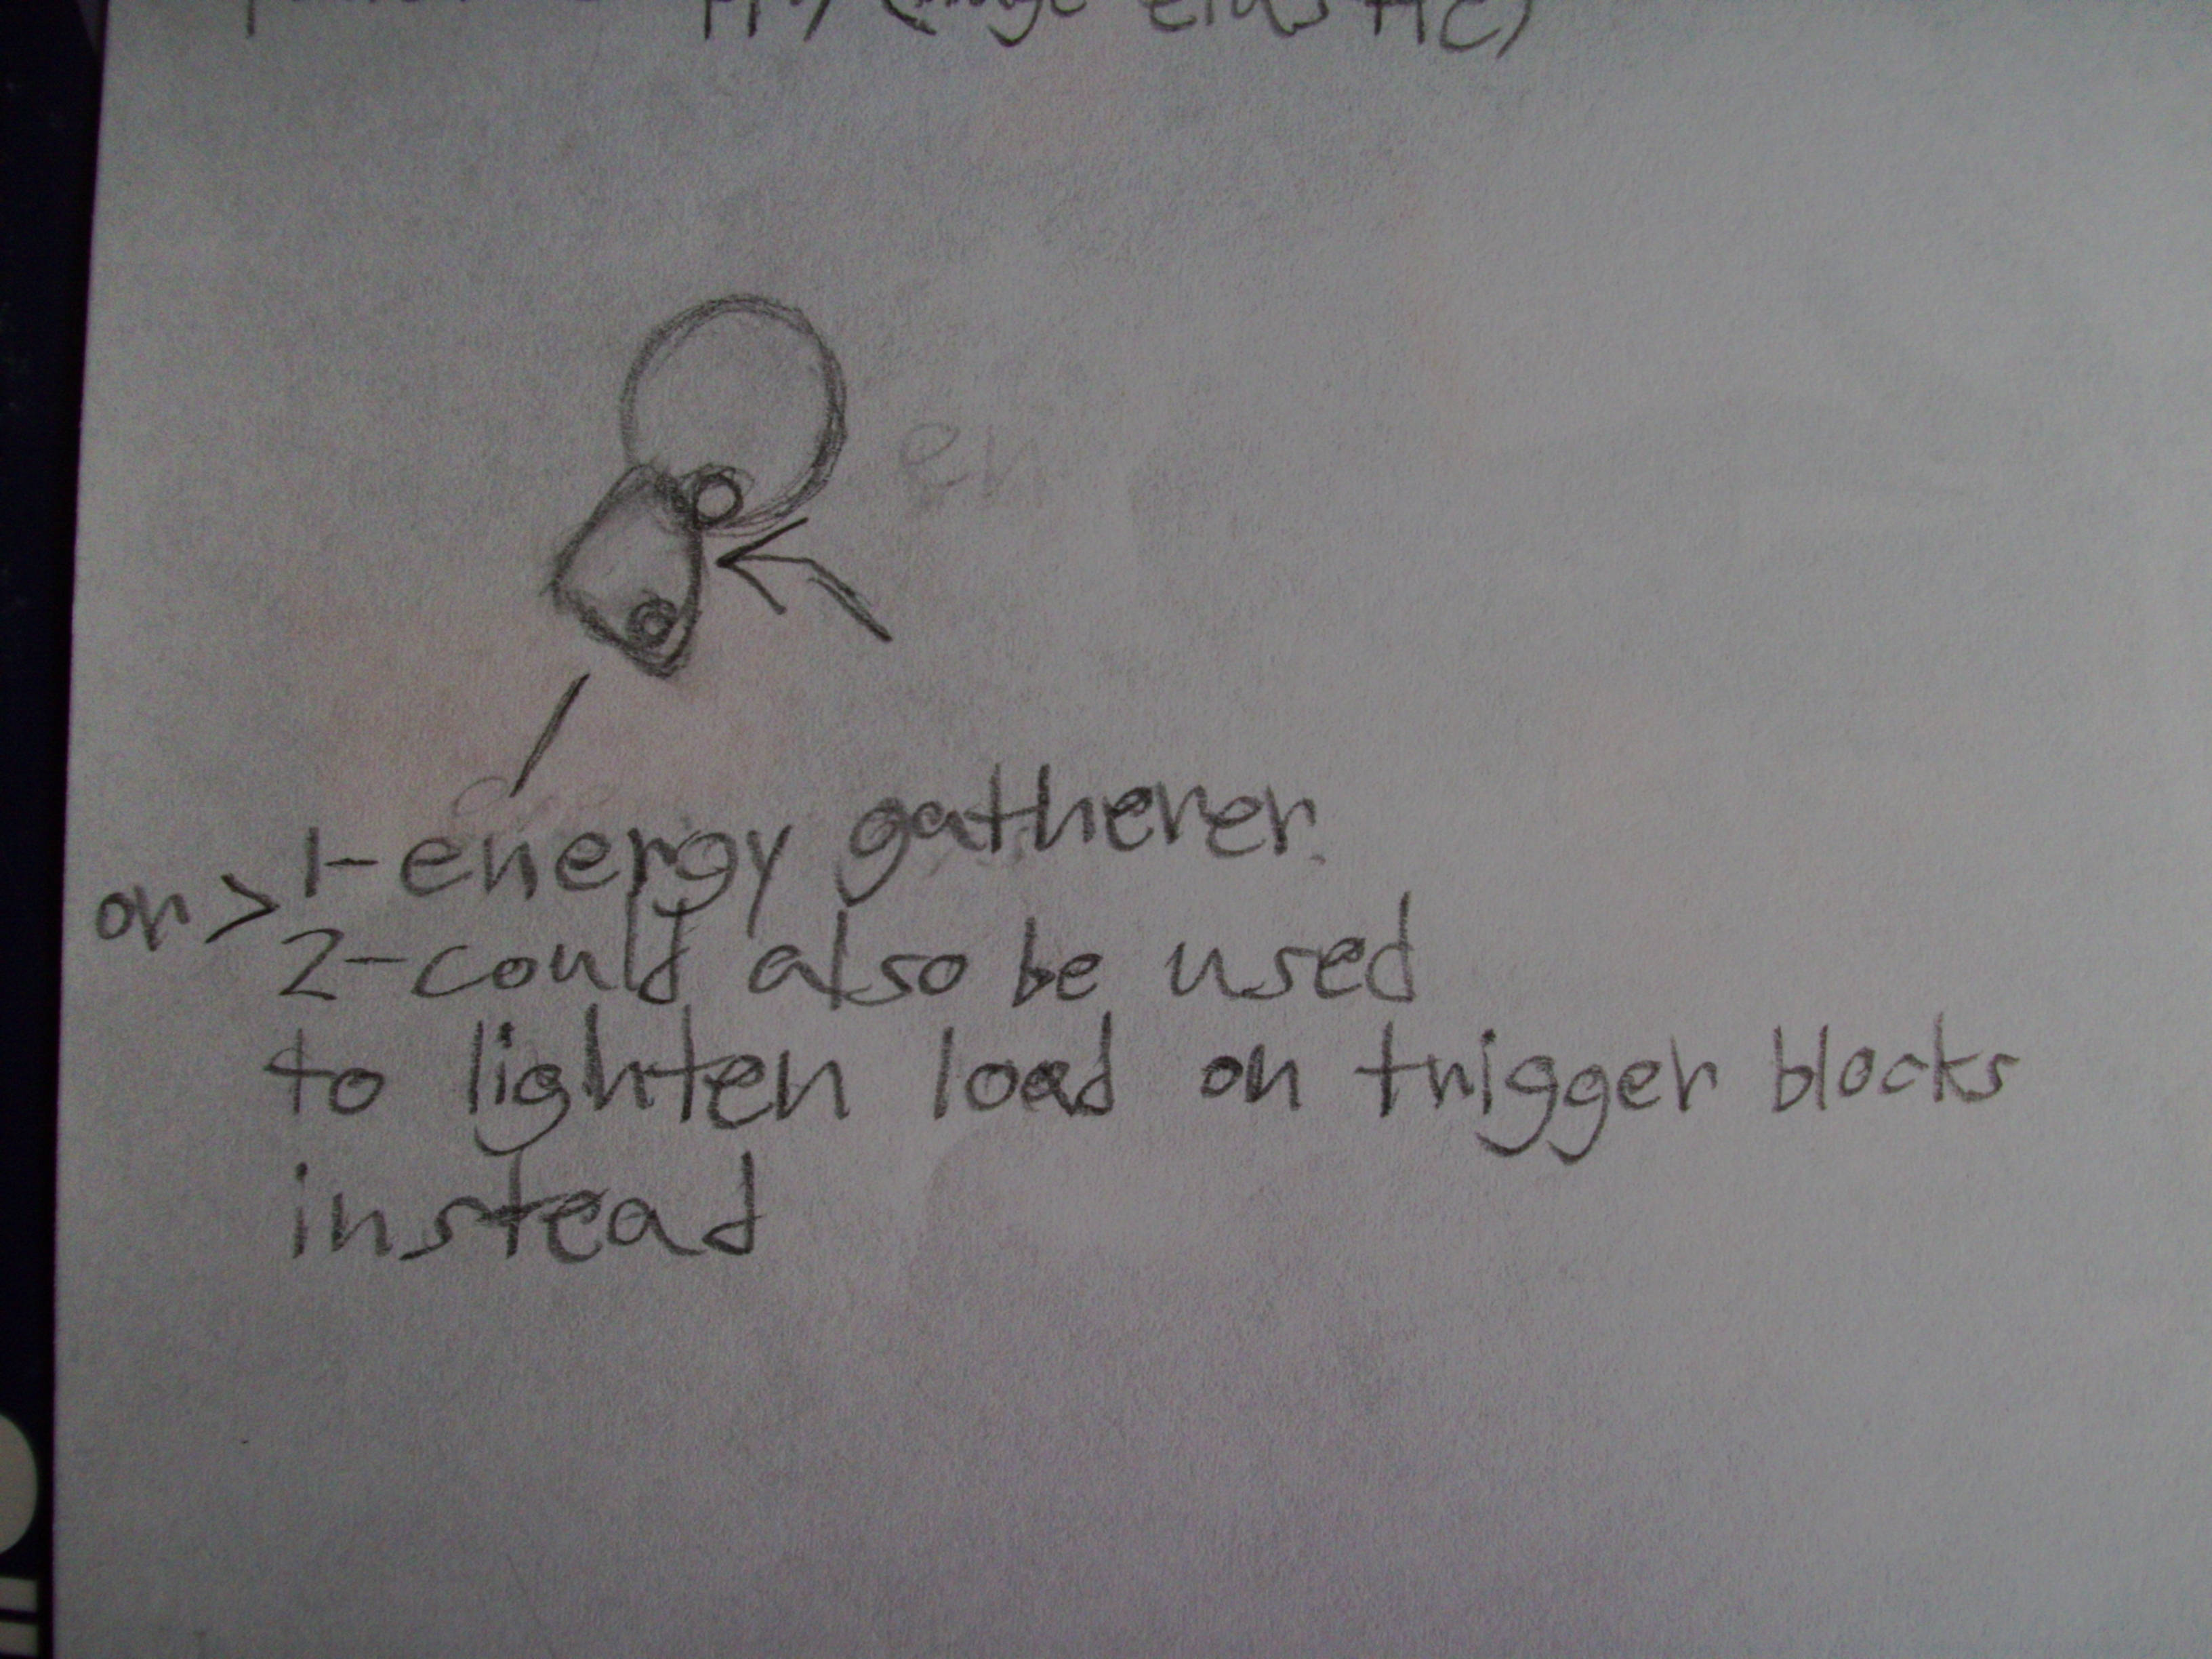 elastic)
en
1-energy gatherer.
or >
2-could also be used
to lighten load on trigger blocks
instead